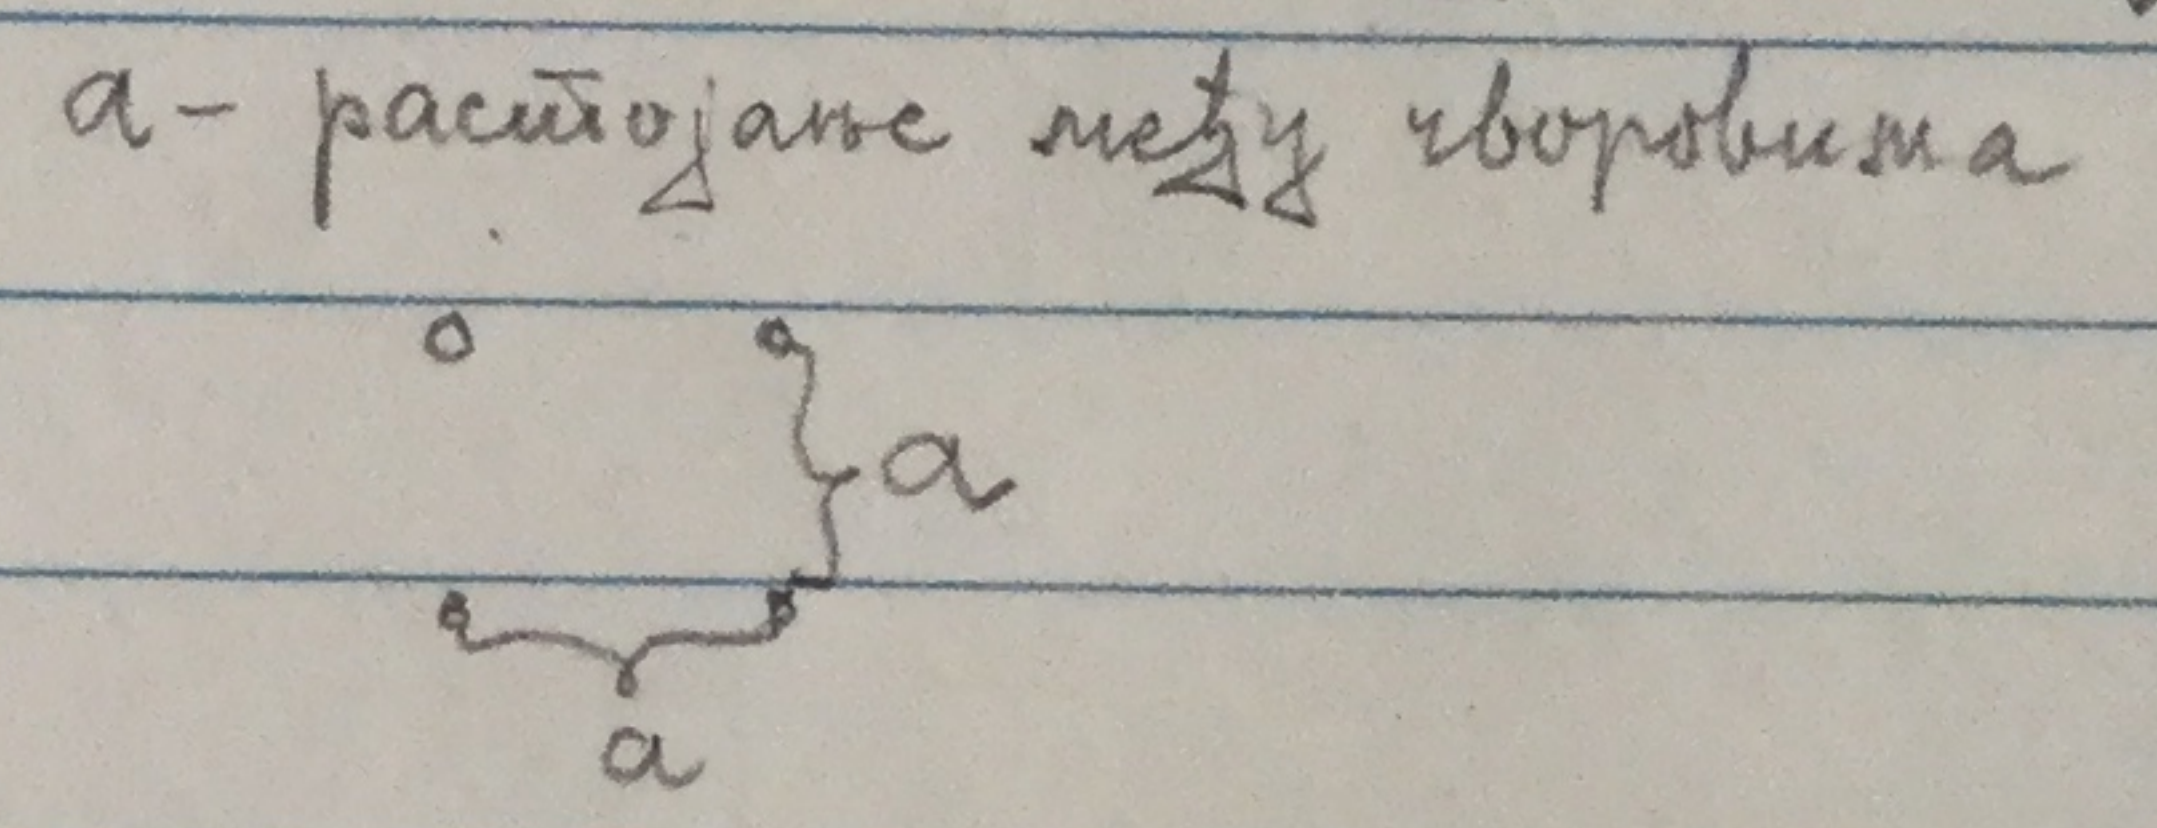 a - растојање међу чворовима
a
a